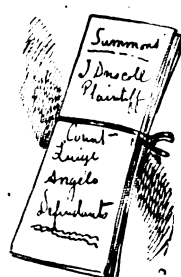 Summons
J Driscoll
Plaintiff
Count
Luigi
Angelo
Defendants